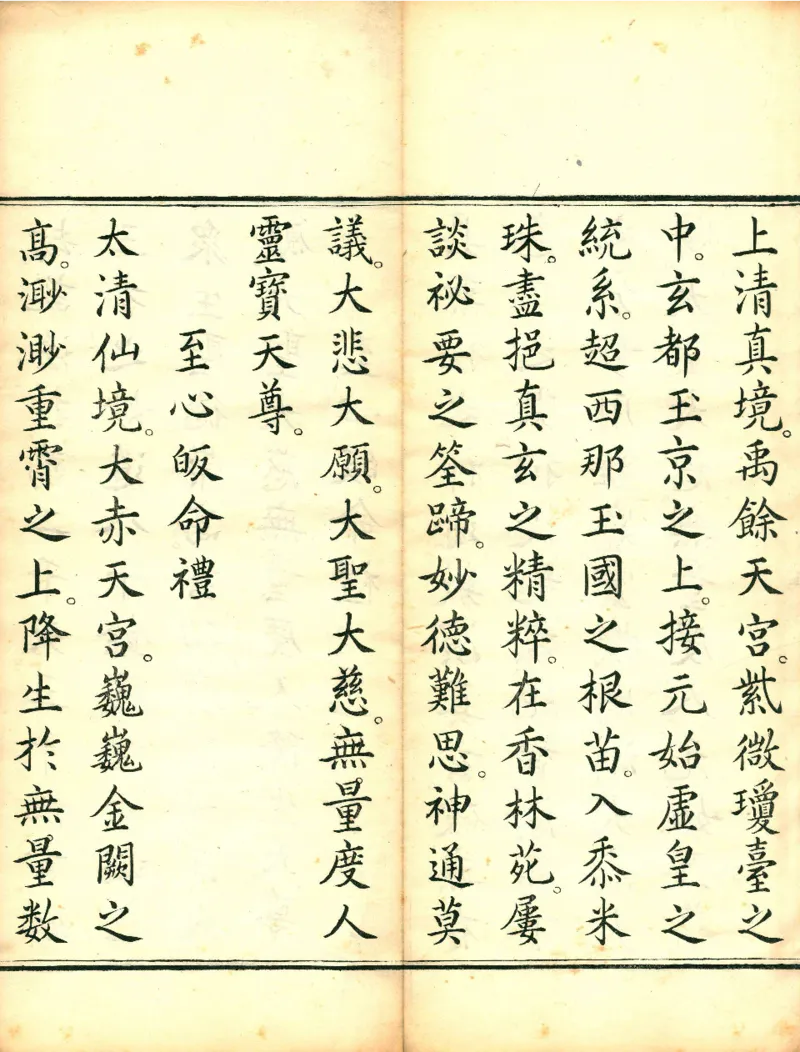 上清真境。禹餘天宮。紫微瓊臺之
中。玄都玉京之上。接元始虛皇之
統系。超西那玉國之根苗。入黍米
珠。盡挹真玄之精粹。在香林苑。屢
談祕要之筌蹄。妙德難思。神通莫
議。大悲大願。大聖大慈。無量度人
靈寶天尊。
至心皈命禮
太清仙境。大赤天宮。巍巍金闕之
高。渺渺重霄之上。降生於無量数